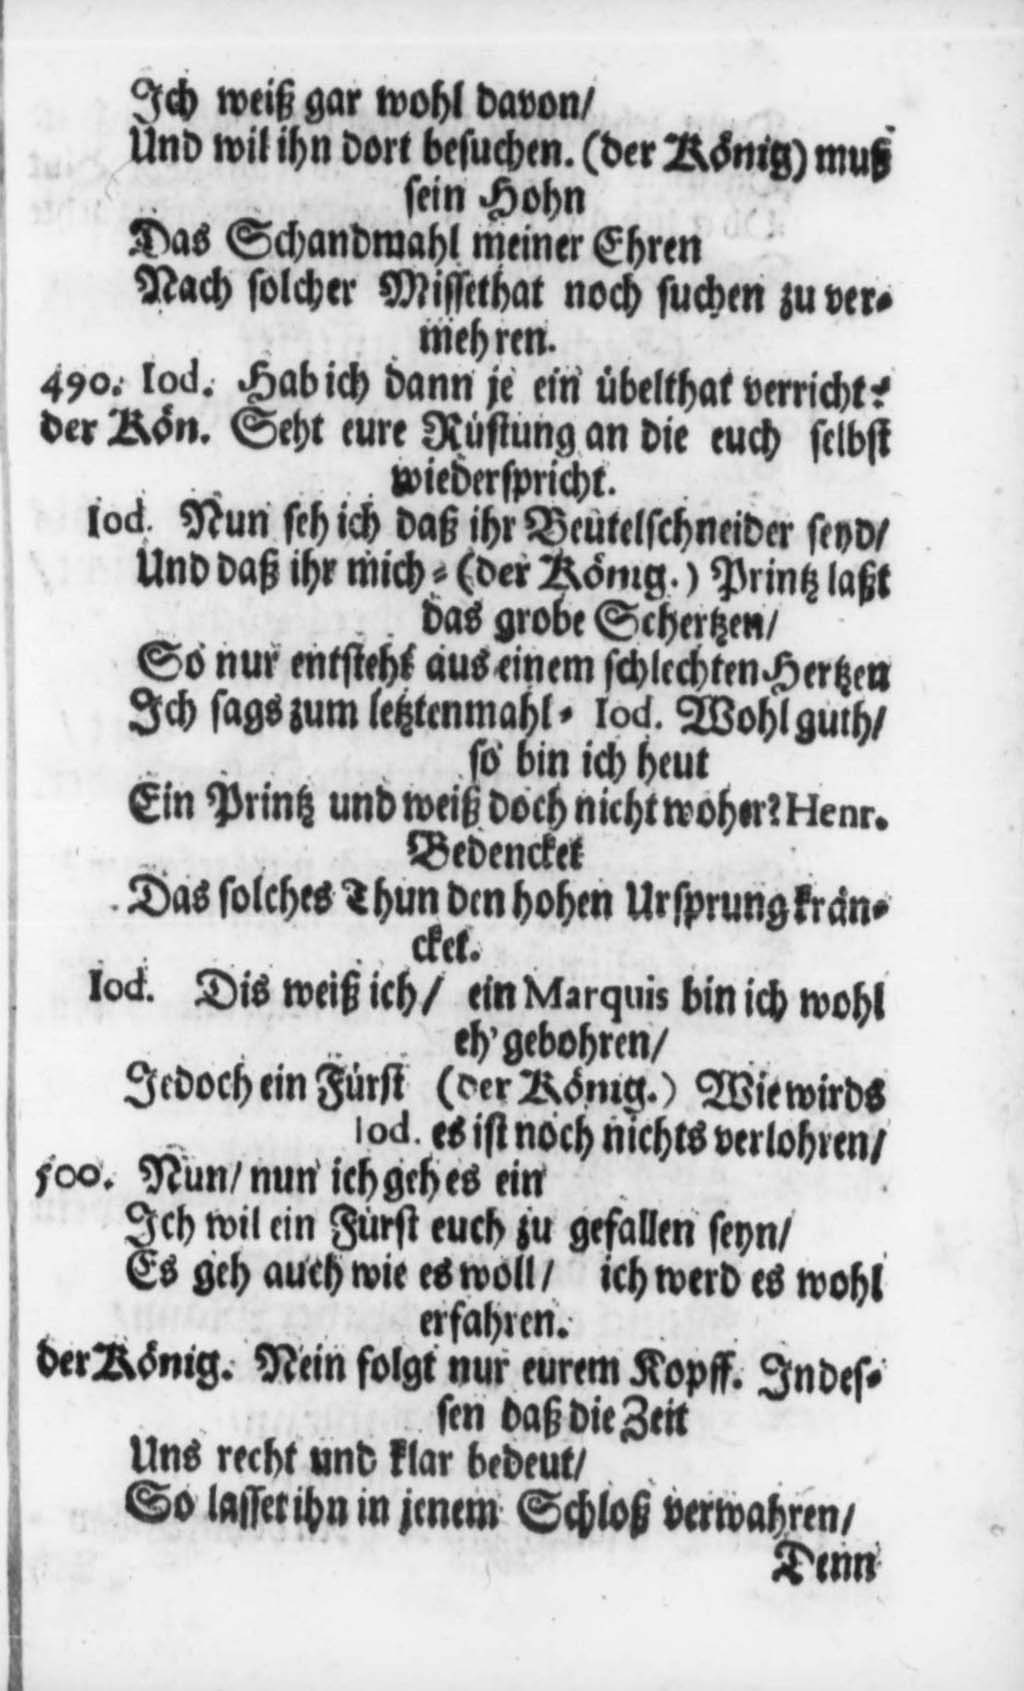 Ich weiß gar wohl davon/
Und wil ihn dort besuchen. (der König) muß
sein Hohn
Das Schandmahl meiner Ehren
Nach solcher Missethat noch suchen zu ver-
mehren.
490. Iod. Hab ich dann je ein übelthat verricht?
der Kön. Seht eure Rüstung an die euch selbst
wiederspricht.
Iod. Nun seh ich daß ihr Beutelschneider seyd/
Und daß ihr mich - (der König.) Printz laßt
das grobe Schertzen/
So nur entsteht aus einem schlechten Hertzen
Ich sags zum letztenmahl - Iod. Wohl guth/
so bin ich heut
Ein Printz und weiß doch nicht woher? Henr.
Bedencket
Das solches Thun den hohen Ursprung krän-
cket.
Iod. Dis weiß ich/ ein Marquis bin ich wohl
eh' gebohren/
Jedoch ein Fürst (der König.) Wie wirds
Iod. es ist noch nichts verlohren/
500. Nun/ nun ich geh es ein
Ich wil ein Fürst euch zu gefallen seyn/
Es geh auch wie es woll/ ich werd es wohl
erfahren.
der König. Nein folgt nur eurem Kopff. Indes-
sen daß die Zeit
Uns recht und klar bedeut/
So lasset ihn in jenem Schloß verwahren/
Denn